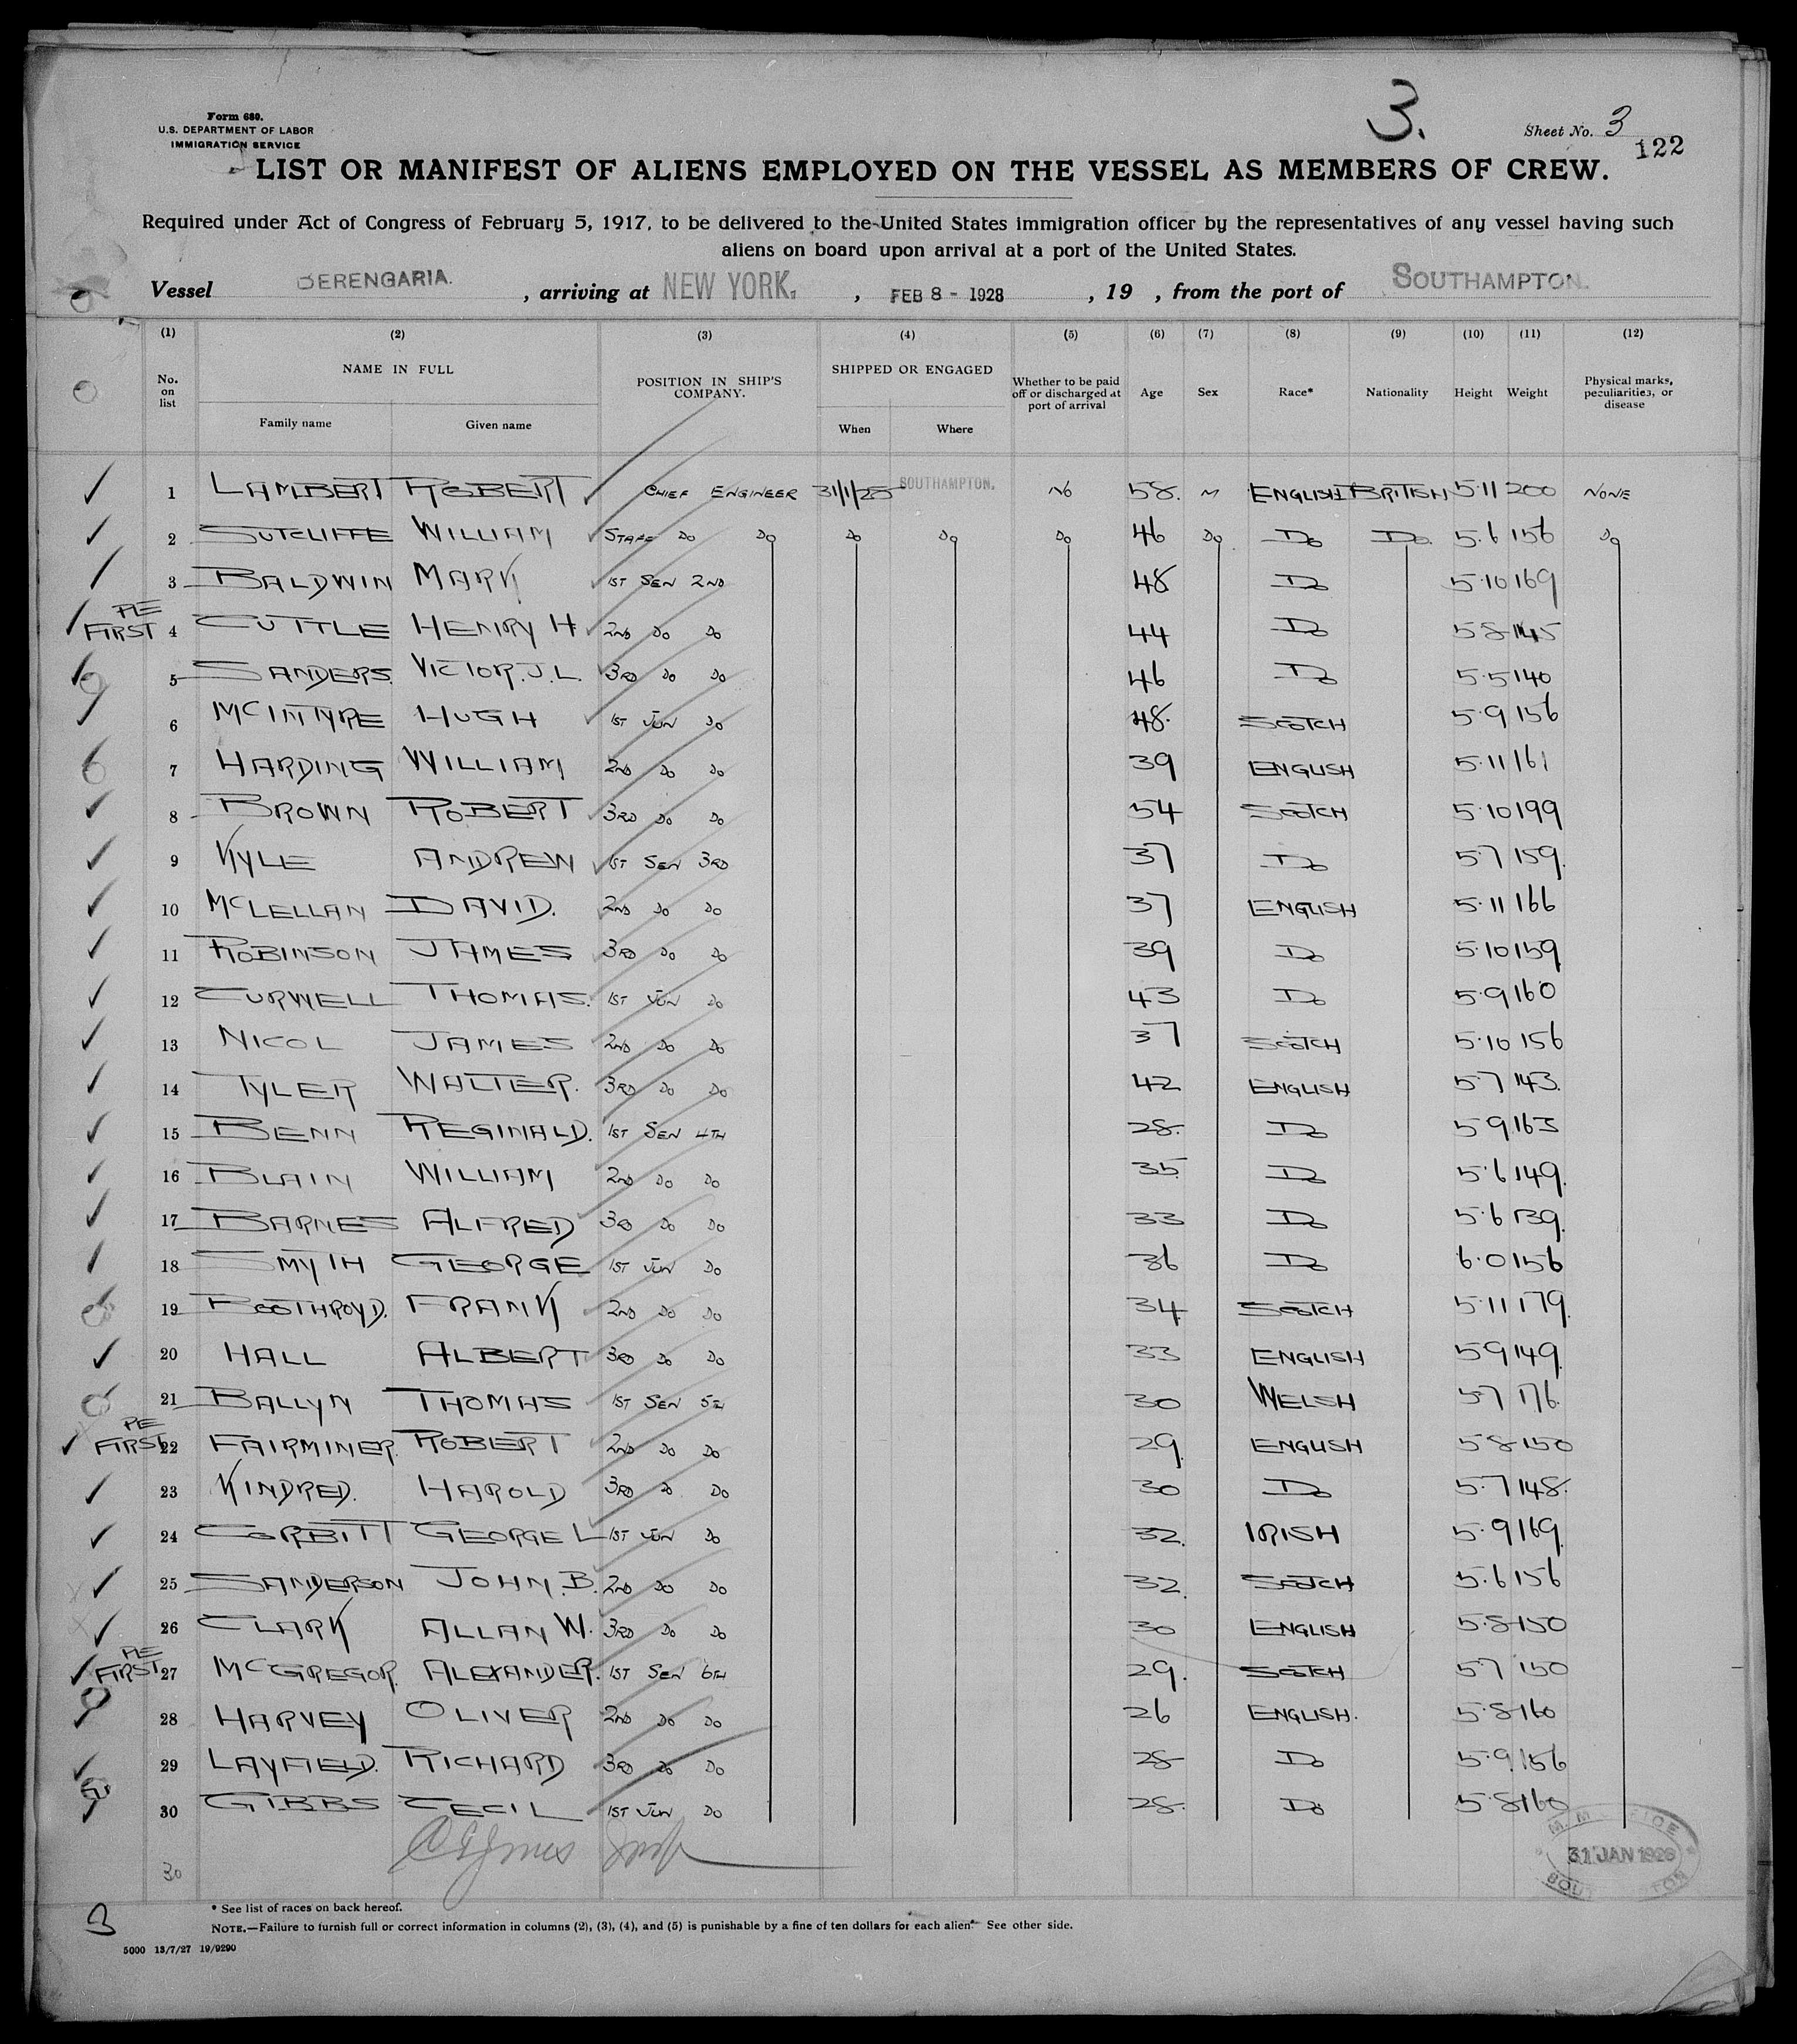 Form 680.
U.S. DEPARTMENT OF LABOR
IMMIGRATION SERVICE
3.
Sheet No. 3
122
LIST OR MANIFEST OF ALIENS EMPLOYED ON THE VESSEL AS MEMBERS OF CREW.
Required under Act of Congress of February 5, 1917, to be delivered to the United States immigration officer by the representatives of any vessel having such
aliens on board upon arrival at a port of the United States.
Vessel BERENGARIA. , arriving at NEW YORK. , FEB 8 - 1928 , 19 , from the port of SOUTHAMPTON.
(1) (2) (3) (4) (5) (6) (7) (8) (9) (10) (11) (12)
No. on list NAME IN FULL Family name Given name POSITION IN SHIP'S COMPANY. SHIPPED OR ENGAGED When Where Whether to be paid off or discharged at port of arrival Age Sex Race* Nationality Height Weight Physical marks, peculiarities, or disease
1 LAMBERT ROBERT CHIEF ENGINEER 31/1/28 SOUTHAMPTON. NO 58. M ENGLISH BRITISH 5.11 200 NONE
2 SUTCLIFFE WILLIAM STAFF DO DO DO DO DO 46 DO DO DO. 5.6 156 DO
3 BALDWIN MARK 1ST SEN 2ND 48 DO 5.10 169
PE FIRST 4 CUTTLE HENRY H 2ND DO DO 44 DO 5.8 145
5 SANDERS. VICTOR.J.L. 3RD DO DO 46 DO 5.5 140
6 MCINTYRE HUGH 1ST JUN DO 48. SCOTCH 5.9 156
7 HARDING WILLIAM 2ND DO DO 39 ENGLISH 5.11 161
8 BROWN ROBERT 3RD DO DO 54 SCOTCH 5.10 199
9 KYLE ANDREW 1ST SEN 3RD 37 DO 5.7 159.
10 MCLELLAN DAVID. 2ND DO DO 37 ENGLISH 5.11 166
11 ROBINSON JAMES 3RD DO DO 39 DO 5.10 159
12 CURWELL THOMAS. 1ST JUN DO 43 DO 5.9 160
13 NICOL JAMES 2ND DO DO 37 SCOTCH 5.10 156
14 TYLER WALTER. 3RD DO DO 42 ENGLISH 5.7 143.
15 BENN REGINALD. 1ST SEN 4TH 28. DO 5.9 163
16 BLAIN WILLIAM 2ND DO DO 35 DO 5.6 149.
17 BARNES ALFRED 3RD DO DO 33 DO 5.6 139.
18 SMYTH GEORGE 1ST JUN DO 36 DO 6.0 156
19 BOOTHROYD. FRANK 2ND DO DO 34 SCOTCH 5.11 179.
20 HALL ALBERT 3RD DO DO 33 ENGLISH 5.9 149.
21 BALLYN THOMAS 1ST SEN 5TH 30 WELSH 5.7 176.
PE FIRST 22 FAIRMINER. ROBERT 2ND DO DO 29. ENGLISH 5.8 150
23 KINDRED. HAROLD 3RD DO DO 30 DO 5.7 148.
24 CORBITT GEORGE L 1ST JUN DO 32. IRISH 5.9 169.
25 SANDERSON JOHN.B. 2ND DO DO 32. SCOTCH 5.6 156
26 CLARK ALLAN W. 3RD DO DO 30 ENGLISH 5.8 150
PE FIRST 27 MCGREGOR. ALEXANDER. 1ST SEN 6TH 29. SCOTCH 5.7 150
28 HARVEY OLIVER 2ND DO DO 26 ENGLISH. 5.8 160
29 LAYFIELD. RICHARD 3RD DO DO 28 DO 5.9 156
30 GIBBS CECIL 1ST JUN DO 28. DO 5.8 160
30
31 JAN 1928
* See list of races on back hereof.
NOTE.—Failure to furnish full or correct information in columns (2), (3), (4), and (5) is punishable by a fine of ten dollars for each alien. See other side.
3
5000 13/7/27 19/9290